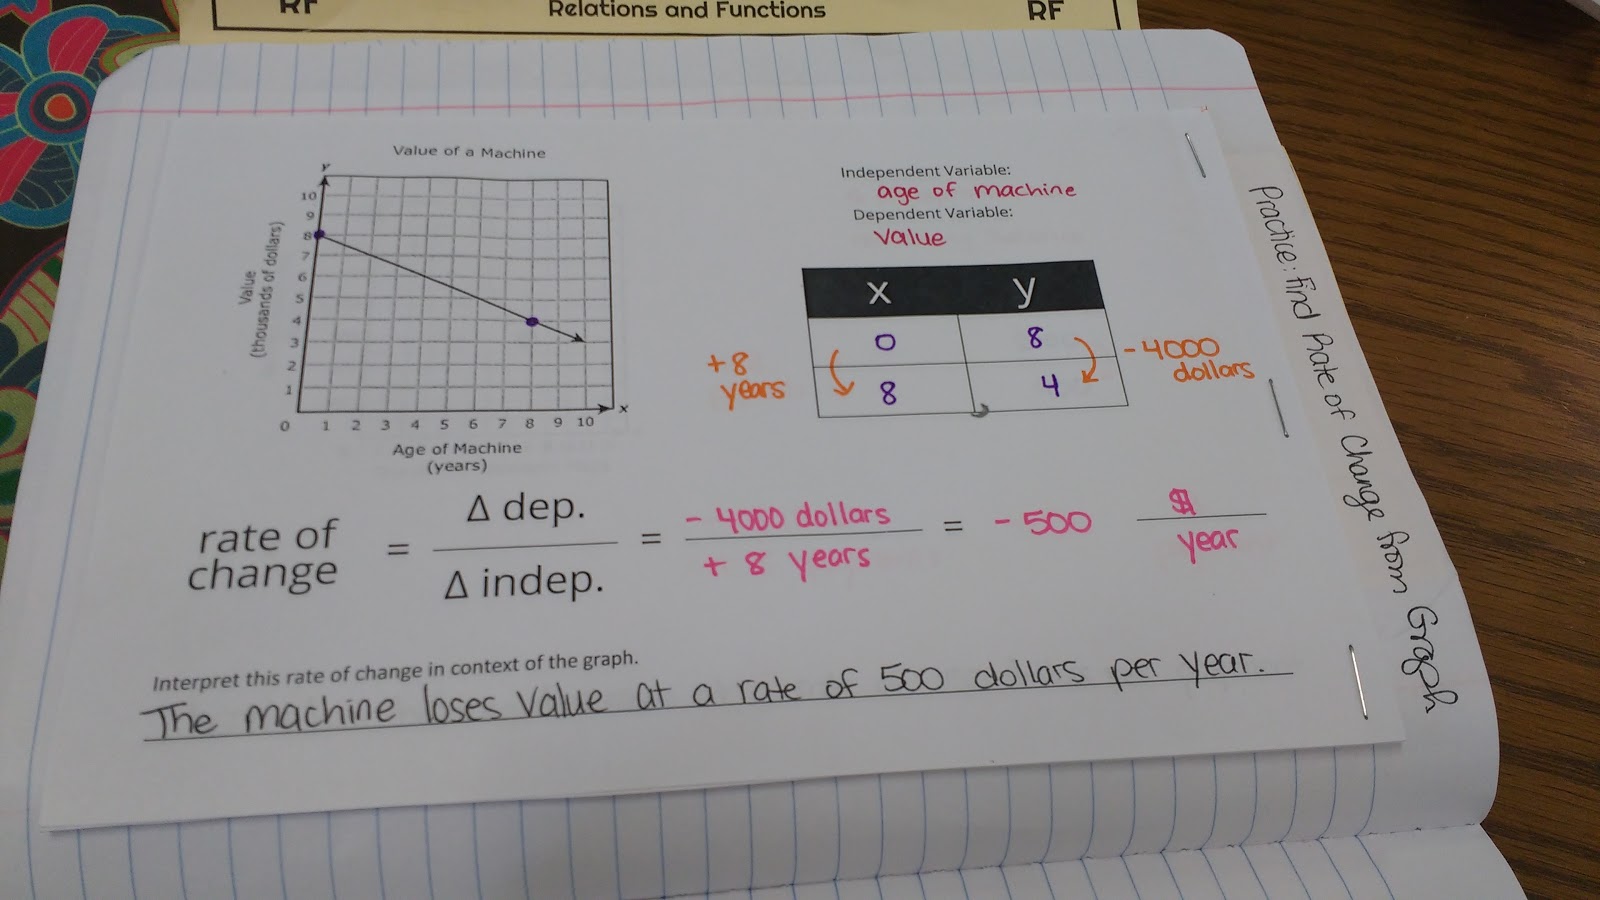 RF Relations and Functions RF
Value of a Machine
y
Value
(thousands of dollars)
10
9
8
7
6
5
4
3
2
1
0 1 2 3 4 5 6 7 8 9 10
x
Age of Machine
(years)
Independent Variable:
age of machine
Dependent Variable:
value
x y
0 8
8 4
+8
years
- 4000
dollars
rate of
change
= Δ dep.
Δ indep.
= - 4000 dollars
+ 8 years
= - 500 $
year
Interpret this rate of change in context of the graph.
The machine loses value at a rate of 500 dollars per year.
Practice: Find Rate of Change from Graph